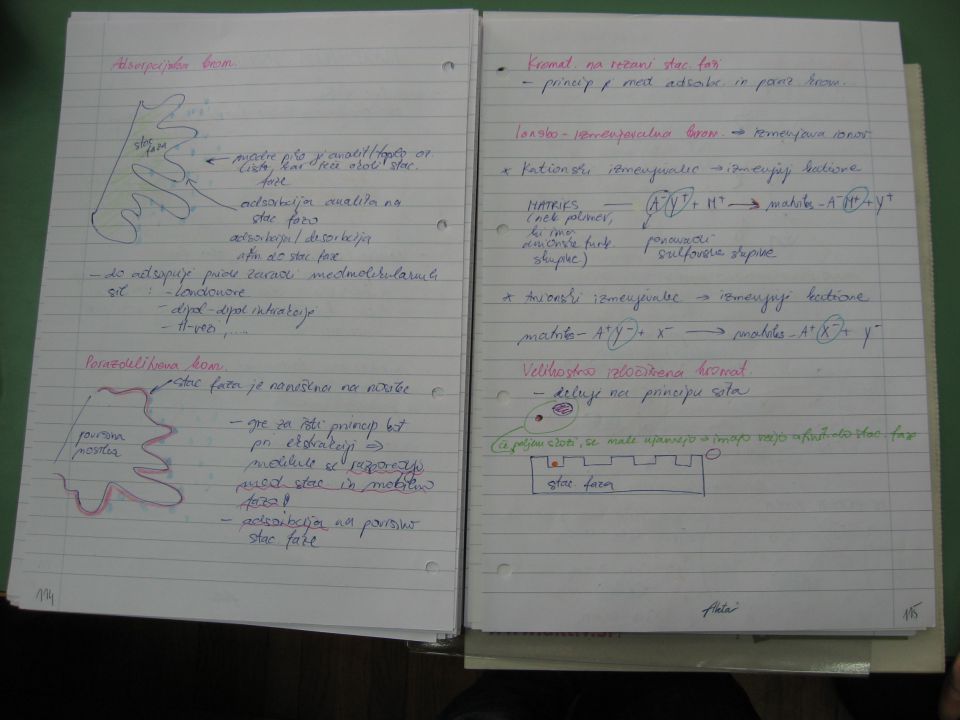 Adsorpcijska krom.
stac.
faza
modre pike je analit/topilo oz
tisto kar teče okoli stac.
faze
adsorbcija analita na
stac. fazo
adsorbcija/desorbcija
afin. do stac. faze
- do adsopcije pride zaradi medmolekularnih
sil : - Londonove
- dipol-dipol interakcije
- H-vezi, ....
Porazdelitvena krom.
stac faza je nanešena na nosilec
porozna
nosilca
- gre za isti princip kot
pri ekstrakciji ⇒
molekule se razporedijo
med stac. in mobilno
fazo!
- adsorbcija na površino
stac faze
114
Kromat. na vezani stac. fazi
- princip je med adsorbc. in poraz krom.
Ionsko-izmenjevalna krom. → izmenjava ionov
* Kationski izmenjevalec → izmenjuje katione
MATRIKS — A⁻Y⁺ + M⁺ → matriks-A⁻M⁺ + Y⁺
(nek polimer,
ki ima
anionske funk.
skupine)
ponavadi
sulfonske skupine
* Anionski izmenjevalec → izmenjuje katione
matriks- A⁺Y⁻ + X⁻ → matriks-A⁺X⁻ + Y⁻
Velikostno izključitvena kromat.
- deluje na principu sita
se male ujamejo → imajo večjo afinit. do stac. faze
stac. faza
115